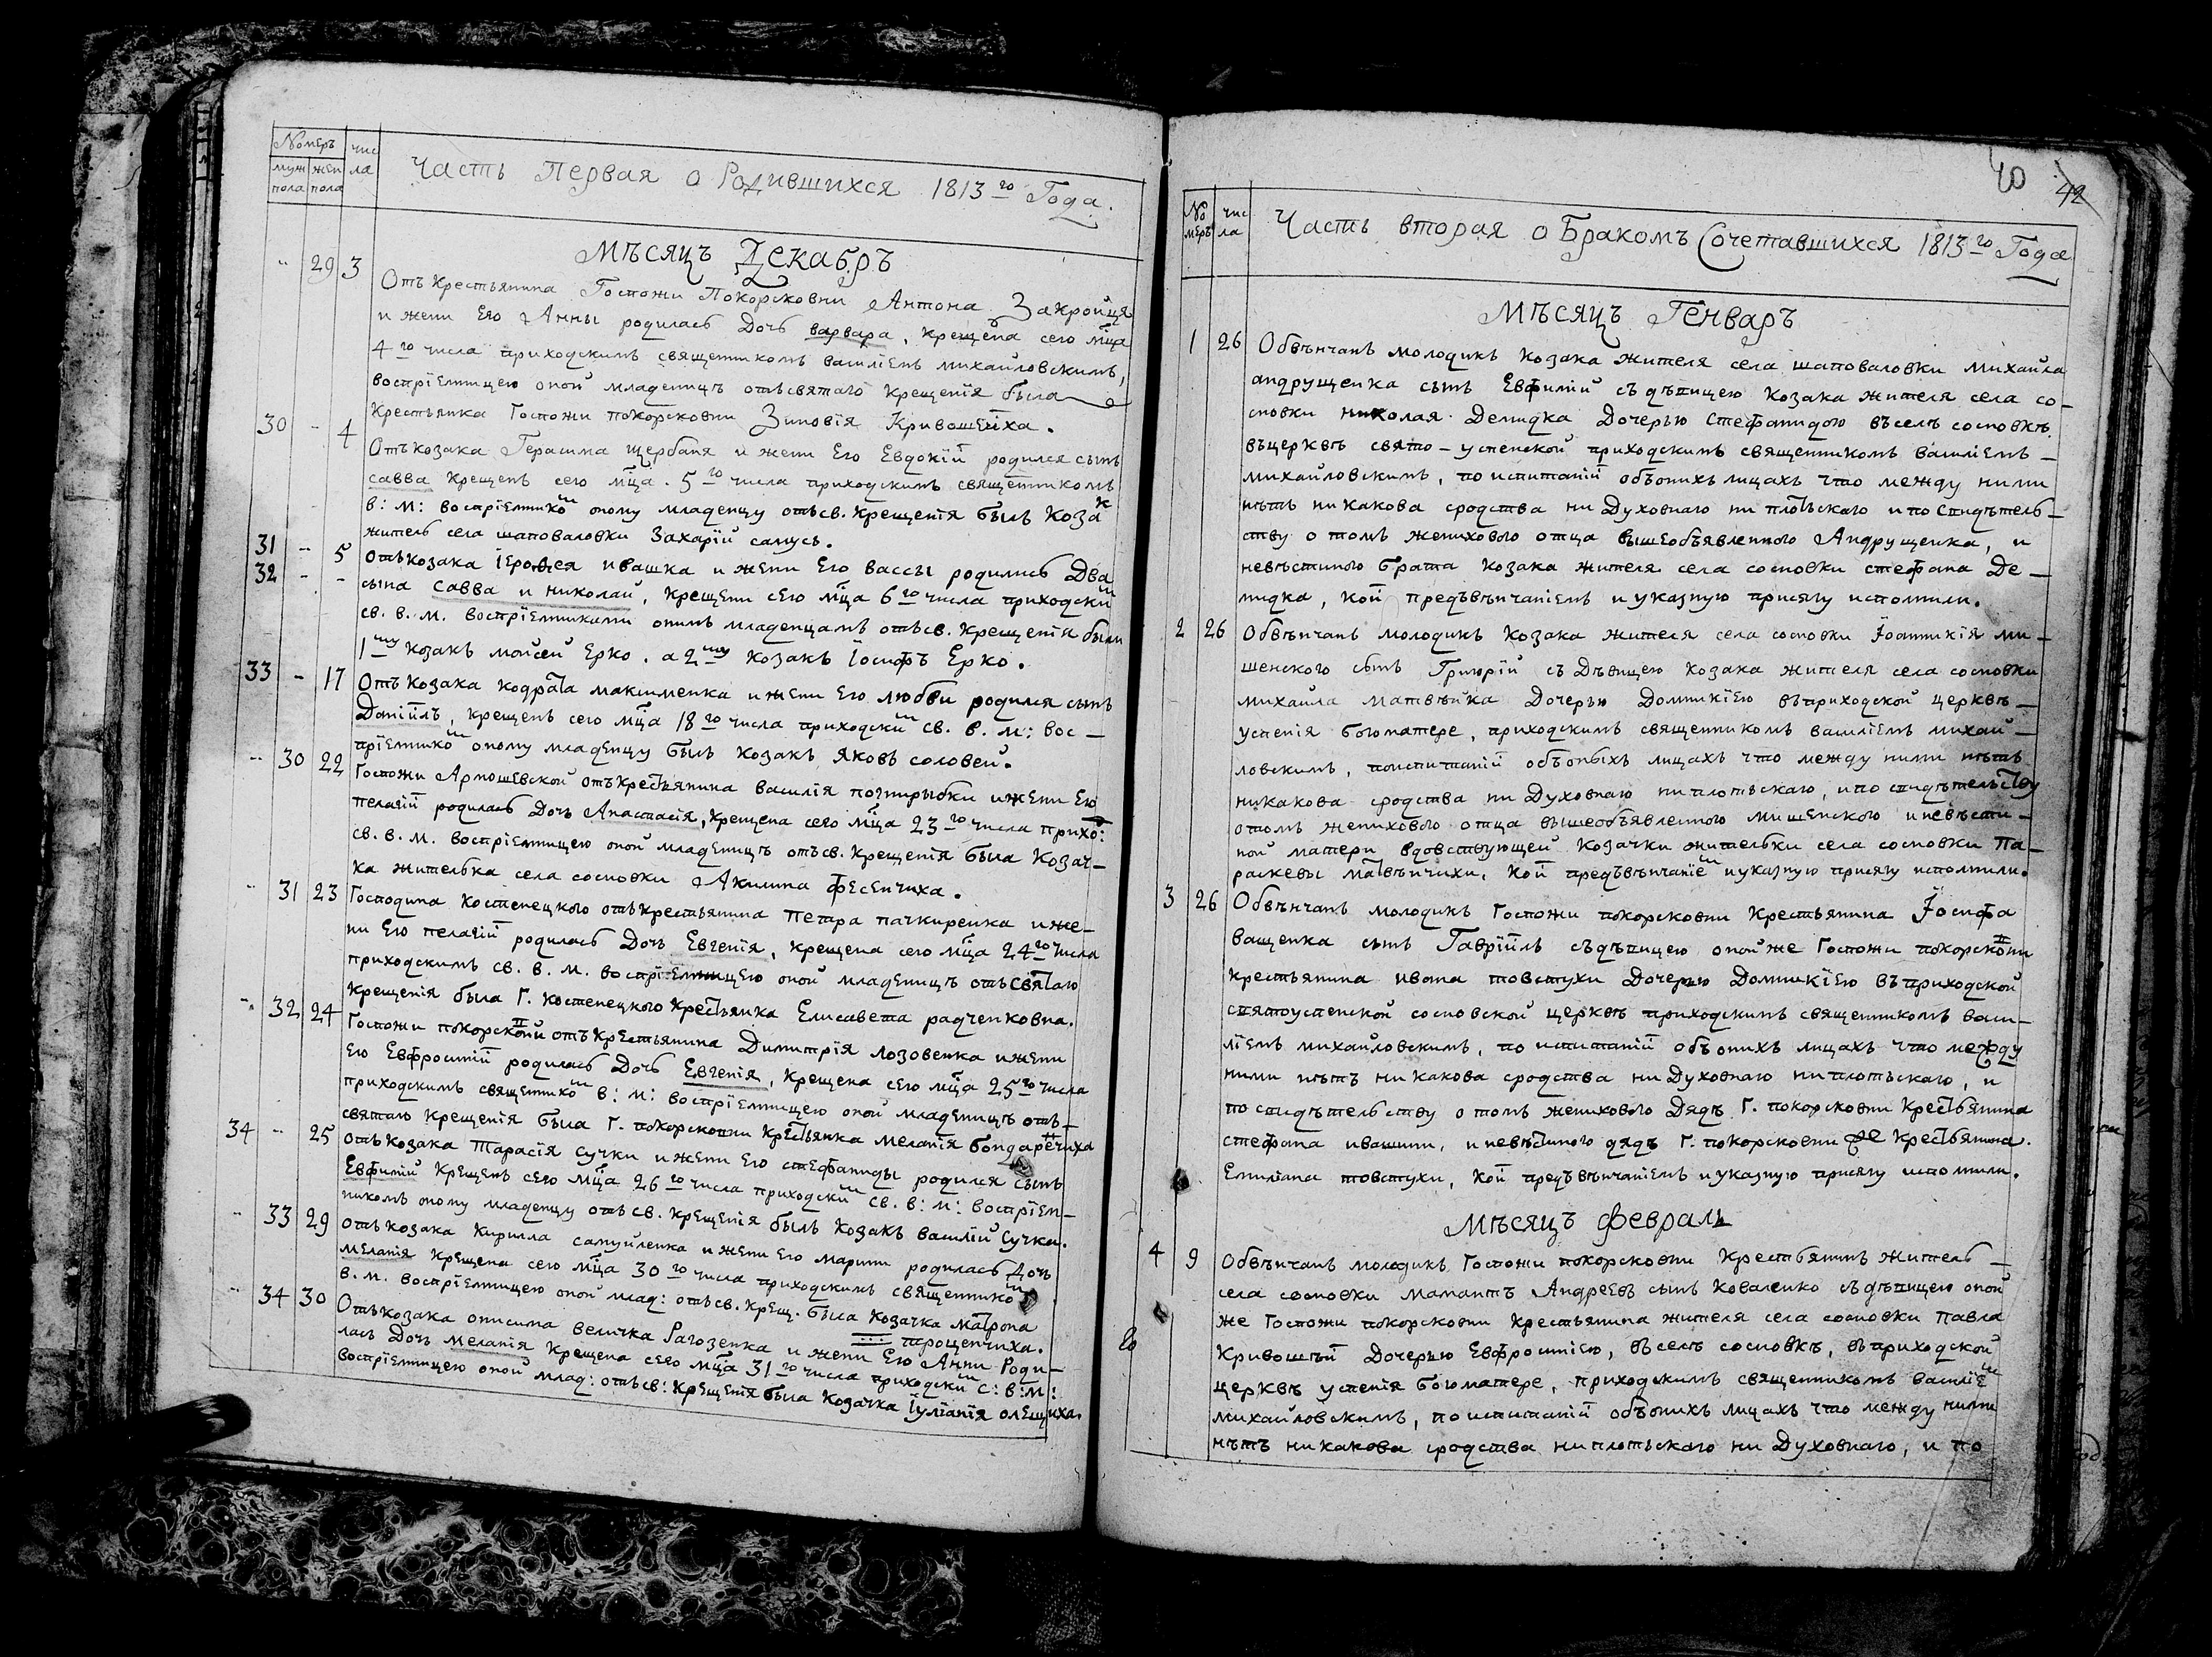 Номеръ чис
муж жен ла
пола пола
Часть Первая о Родившихся 1813го Года.
Мѣсяцъ Декабръ
29 3 Отъ Крестьянина Госпожи Покорсковни Антона Закройця
и жени Его Анны родилась Дочь варвара, Крещена сего мца
4го числа приходскимъ священникомъ василіемъ михайловскимъ,
воспріемницею оной младеницѣ отъ святаго Крещенія была
Крестьянка Госпожи покорсковни Зиновія Кривошеиха.
30 - 4 Отъ козака Герасима щербаня и жени Его Евдокій родился сынъ
савва Крещенъ сего мца. 5го числа приходскимъ священникомъ
в: м: воспріемнико оному младенцу отъ св. Крещенія былъ Козак
житель села шаповаловки Захарій самусь.
31 - 5 отъ козака Іерофея ивашка и жени Его вассы родились Два
32 - - сына савва и николай, Крещени сего мца 6го числа приходский
св. в. м. воспріемниками онимъ младенцамъ отъ св. Крещенія были
1му козакъ мойсей Ерко. а 2му козакъ Іосифъ Ерко.
33 - 17 Отъ Козака кодрата максименка и жени Его любви родился сынъ
Даніилъ, крещенъ сего мца 18го числа приходски св. в. м: вос-
пріемнико оному младенцу былъ козакъ яковъ соловей.
30 22 Госпожи Армошевской отъ крестьянина василія погнирыбки и жени Его
пелагій родилась Дочь Анастасія, Крещена сего мца 23го числа прихо:
св. в. м. воспріемницею оной младеницѣ отъ св. Крещенія была Козач-
ка жителька села сосновки Акилина Фесенчиха.
31 23 Господина Костенецкого отъ крестьянина Петра пачкиренка и же-
ни Его пелагій родилась Дочь Евгенія, крещена сего мца 24го числа
приходскимъ св. в. м. воспріемницею оной младеницѣ отъ святаго
Крещенія была Г. Костенецкого Крестьянка Елисавета радченковна.
32 24 Госпожи покорскони отъ Крестьянина Димитрія лозовенка и жени
Его Евфросиній родилась Дочь Евгенія, Крещена сего мца 25го числа
приходскимъ священнико в: м: воспріемницею оной младеницѣ отъ-
святаго Крещенія была Г. покорсковни Крестьянка меланія бондаречиха
34 - 25 отъ козака Тарасія сучки и жени Его стефаниды родился сынъ
Евфимій Крещенъ сего мца 26го числа приходски св. в: м: воспріем-
никомъ оному младенцу отъ св. Крещенія былъ козакъ василій Сучка.
33 29 отъ козака Кирилла самуйленка и жени Его марини родилась дочь
меланія Крещена сего мца 30го числа приходскимъ священнико
в. м. воспріемницею оной млад: отъ св. Крещ. была Козачка матрона
трощенчиха.
34 30 Отъ козака онисима величка Рагозенка и жени Его Анни Роди-
лась Дочь меланія Крещена сего мца 31го числа приходски с: в: м:
воспріемницею оной млад: отъ св: Крещенія была Козачка Іуліанія олещиха.
40 42
Но чис
меръ ла
Часть вторая о Бракомъ Сочетавшихся 1813го Года
Мѣсяцъ Генваръ
1 26 Обвѣнчанъ молодикъ козака жителя села шаповаловки михайла
андрущенка сынъ Евфимій съ дѣвицею козака жителя села со-
сновки николая Демидка Дочерью стефанидою въ селѣ сосновкѣ
въ церквѣ свято-успенской приходскимъ священникомъ василіемъ-
михайловскимъ, по испитаній обь онихъ лицахъ что между ними
нѣтъ ни какова сродства ни Духовнаго ни плотьскаго и по свидѣтель-
ству о томъ женихового отца вышеобъявленного Андрущенка, и
невѣстиного брата козака жителя села сосновки стефана Де-
мидка, кой предъвѣнчаніемъ и указную присягу исполнили.
2 26 Обвѣнчанъ молодикъ козака жителя села сосновки Іоанникія ми-
шенского сынъ Григорій съ Дѣвицею козака жителя села сосновки
михаила матвѣйка Дочерью Домникіею въ приходской церквѣ-
успенія богоматере, приходскимъ священникомъ василіемъ михай-
ловскимъ, поиспитаній объ оныхъ лицахъ что между ними нѣтъ
никакова сродства ни Духовнаго ни плотьскаго, и по свидѣтельству
о томъ женихового отца вышеобъявленного мишенского и невѣсти-
ной матери вдовствующей козачки жительки села сосновки Па-
раскевы матвѣичихи, кой предъвѣнчаніе и указную присягу исполнили.
3 26 Обвѣнчанъ молодикъ Госпожи покорсковни Крестьянина Іосифа
ващенка сынъ Гавріилъ съ дѣвицею оной же Госпожи покорскони
крестьянина ивана товстухи Дочерью Домникіею въ приходской
святоуспенской сосновской церквѣ приходскимъ священникомъ васи-
ліемъ михайловскимъ, по испитаній объ онихъ лицахъ что между
ними нѣтъ ни какова сродства ни Духовнаго ни плотьскаго, и
по свидѣтельству о томъ женихового Дядѣ Г. покорсковни Крестьянина
стефана ивашини, и невѣстиного дядѣ Г. покорсковни же Крестьянина.
Емиліана товстухи, кой предъвѣнчаніемъ и указную присягу исполнили.
Мѣсяцъ Февраль
4 9 Обвѣнчанъ молодикъ Госпожи покорсковни Крестьянинъ житель-
села сосновки мамантъ Андреевъ сынъ Коваленко съ дѣвицею оной
же Госпожи покорсковни Крестьянина жителя села сосновки Павла
Кривошѣй Дочерью Евфросиніею, въ селѣ сосновкѣ, въ приходской
церквѣ успенія богоматере, приходскимъ священникомъ василіе
михайловскимъ, по испитаній объ онихъ лицахъ что между ними
нѣтъ ни какова сродства ни плотьскаго ни Духовнаго, и по